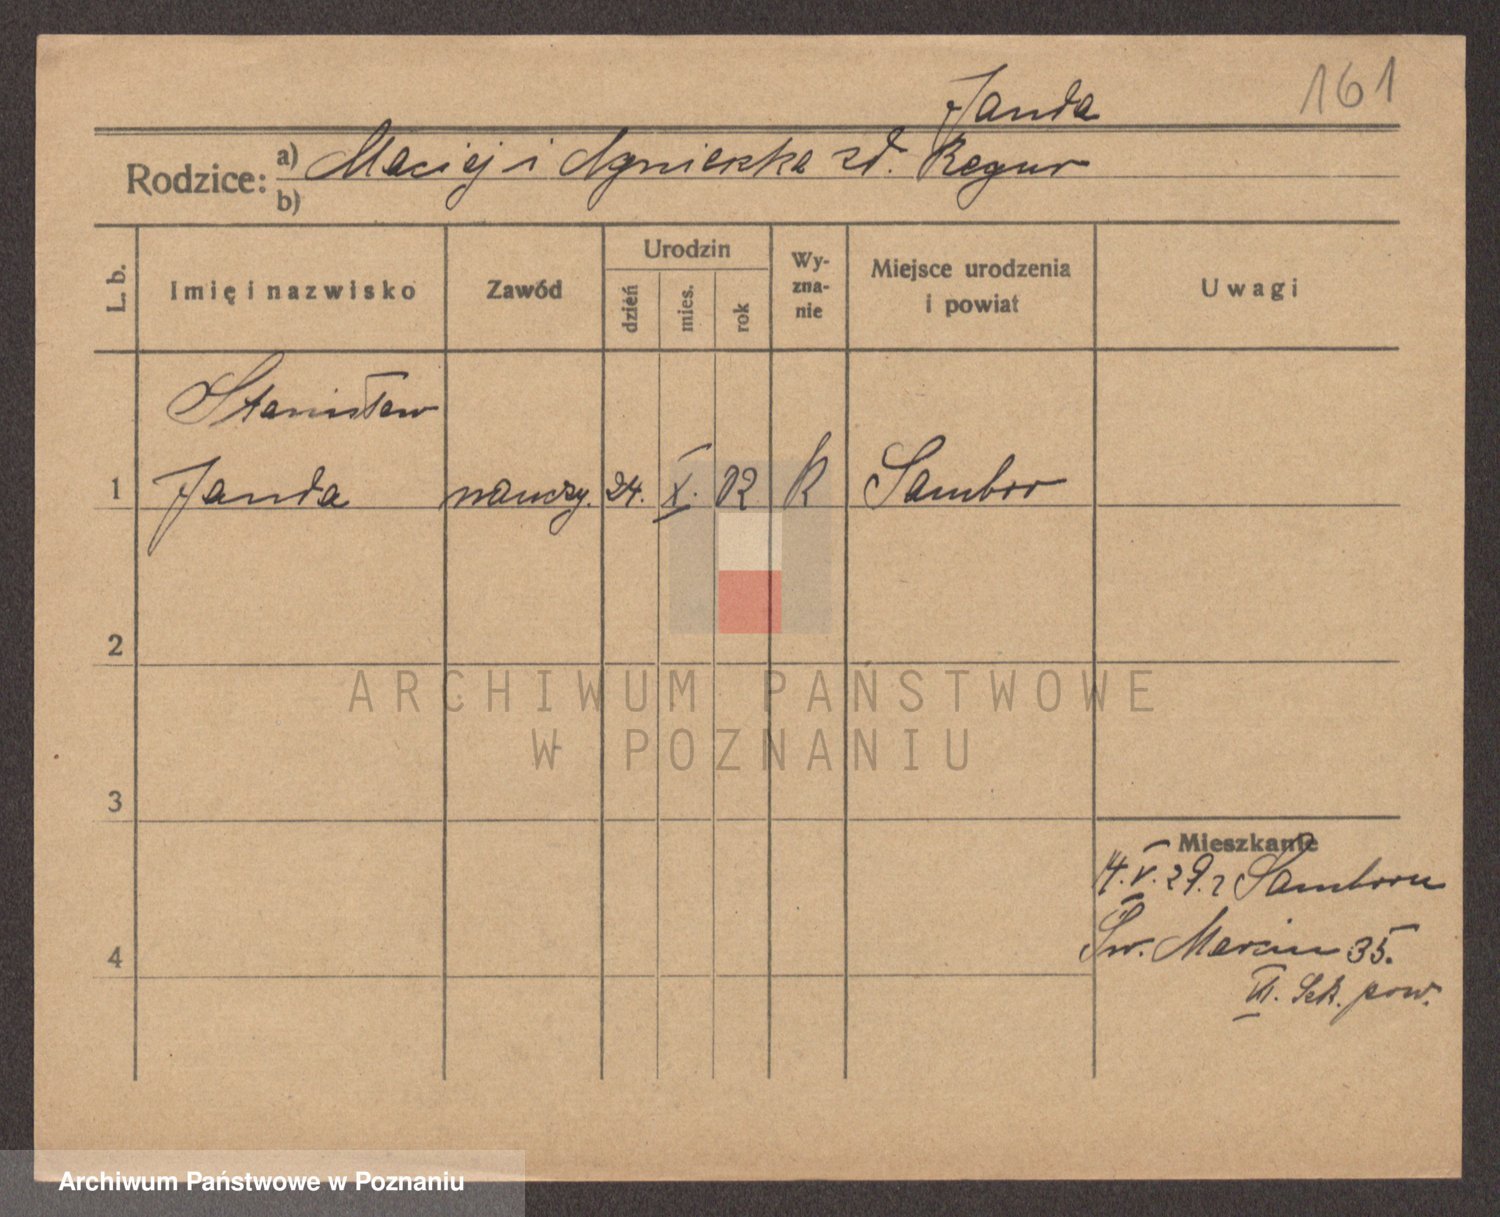 161
Janda
Rodzice: a) Maciej i Agnieszka zd. Regur
b)
L. b.
Imię i nazwisko
Zawód
Urodzin
dzień
mies.
rok
Wy-
zna-
nie
Miejsce urodzenia
i powiat
Uwagi
Stanisław
1 Janda nauczy. 24. X. 02 R Sambor
2
ARCHIWUM PAŃSTWOWE
W POZNANIU
3
Mieszkanie
14. V. 29. z Samboru
4 Św. Marcin 35.
III. pow.
Archiwum Państwowe w Poznaniu